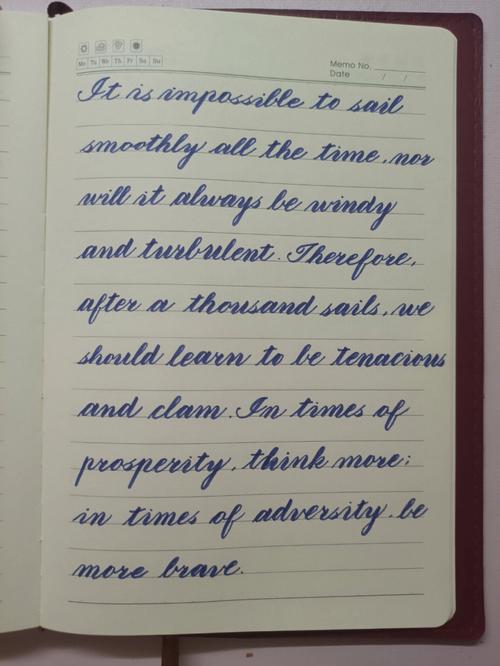 Mo Tu We Th Fr Sa Su
Memo No.
Date / /
It is impossible to sail
smoothly all the time, nor
will it always be windy
and turbulent. Therefore,
after a thousand sails, we
should learn to be tenacious
and clam. In times of
prosperity, think more;
in times of adversity, be
more brave.